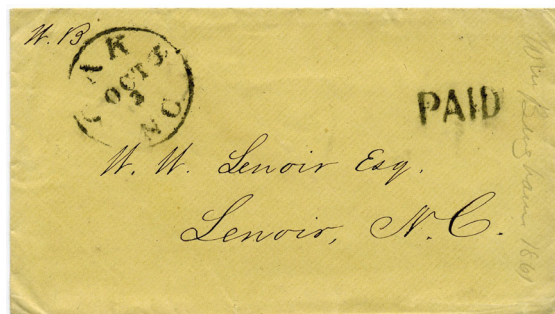 W. B.
OAK
OCT 3
3
NC
PAID
W. W. Lenoir Esq.
Lenoir, N.C.
Wm Bingham 1861